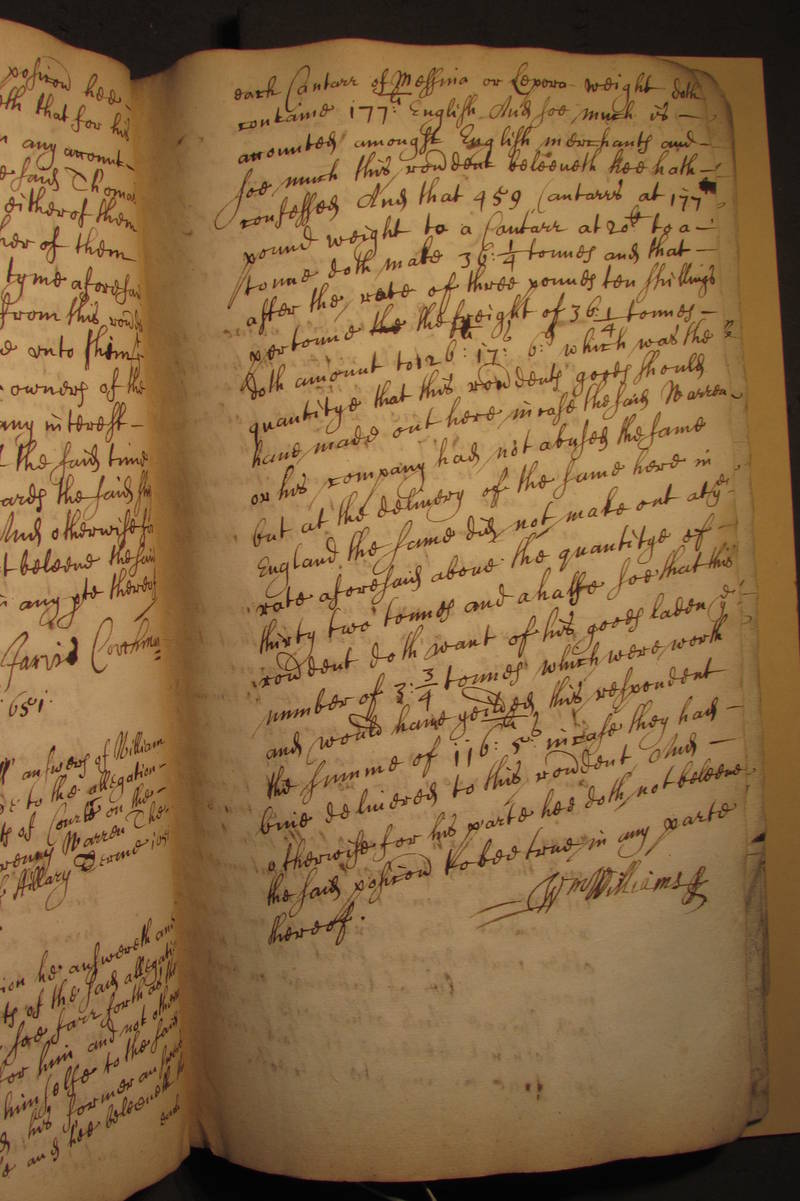 posicon hee
eth that for his
n any account
e said Thomas
either of them
her of them
tyme aforesaid
from this rondent
e vnto them
owners of the
any interest
the said time
wards the said ship
And otherwise for
t beleeve the said
n any pte thereof
Jarvis
1651.
answers of William
e to the allegation
ts of Courte on the
Warren The
Hillary Terme
ion he answereth and
ts of the said allegation
soe farr forth as
for him and not others
himselfe to the said
his former answers
and hee beleeveth
each
each Cantarr of Messina or Lepora weight doth
containe 177li English And soe much is
accounted amongst English merchants and
soe much this rondent beleeveth hee hath
confessed And that 459 Cantarrs at 177
pound weight to a Cantarr at 20 to a
tonne doth make 36: 1/4 tonnes and that
after the rate of three pounds ten shillings
per tonne the the freight of 36 1/4 tonnes
doth amount to 126li: 17s: 6d which was the
quantitye that this rondents goods should
have made out here in case the said Warren
or his company had not abused the same
but at the delivery of the same here in
England the same did not make out at ye
rate aforesaid above the quantitye of
thirty two tonnes and a halfe soe that this
rondent doth want of his goods laden ye
number of 3: 3/4 tonnes which were worth
and would have yeilded this respondent
the summe of 116li: 5s in case they had
bine delivered to this rondent And
otherwise for his parte hee doth not beleeve
the said posicon to bee true in any parte
thereof.
Wm Williams